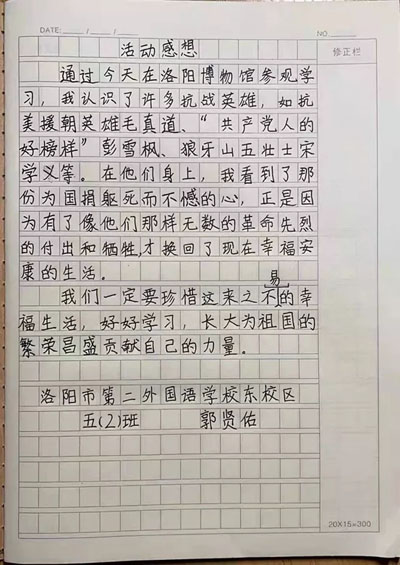 DATE: / /
NO
修正栏
活动感想
通过今天在洛阳博物馆参观学
习，我认识了许多抗战英雄，如抗
美援朝英雄毛真道、“共产党人的
好榜样”彭雪枫、狼牙山五壮士宋
学义等。在他们身上，我看到了那
份为国捐躯死而不憾的心，正是因
为有了像他们那样无数的革命先烈
的付出和牺牲，才换回了现在幸福安
康的生活。
我们一定要珍惜这来之不易的幸
福生活，好好学习，长大为祖国的
繁荣昌盛贡献自己的力量。
洛阳市第二外国语学校东校区
五(2)班 郭贤佑
20X15=300